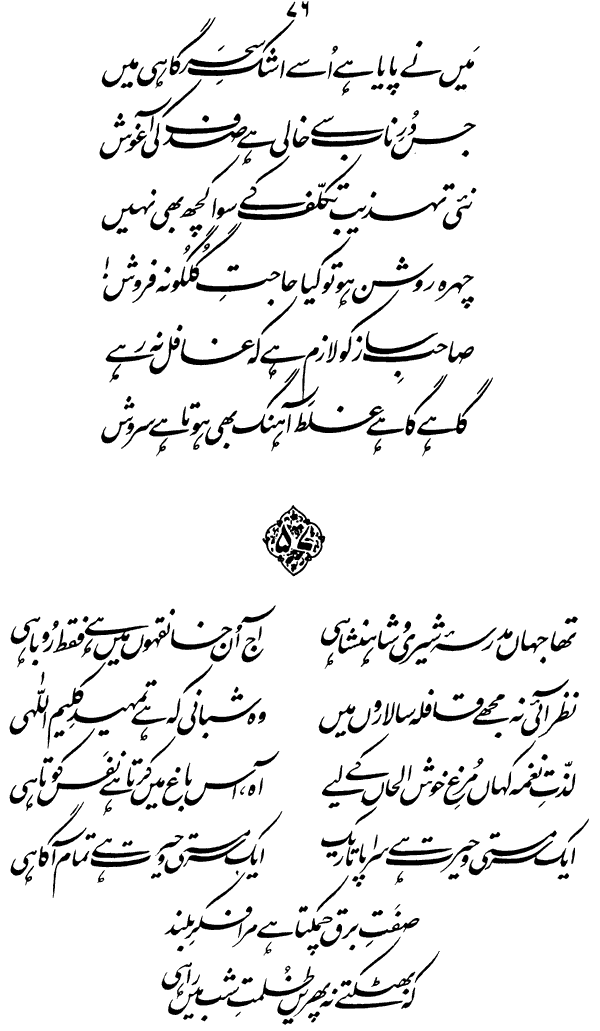 ۷۶
مَیں نے پایا ہے اُسے اشکِ سحَر گاہی میں
جس دُرِ ناب سے خالی ہے صدَف کی آغوش
نئی تہذیب تکلّف کے سوا کچھ بھی نہیں
چہرہ روشن ہو تو کیا حاجتِ گُلگُونہ فروش!
صاحبِ ساز کو لازم ہے کہ غافل نہ رہے
گاہے گاہے غلَط آہنگ بھی ہوتا ہے سروش
۵۷
تھا جہاں مدرسۂ شیری و شاہنشاہی
آج اُن خانقہوں میں ہے فقط رُوباہی
نظر آئی نہ مجھے قافلہ سالاروں میں
وہ شبانی کہ ہے تمہیدِ کلیم اللّٰہی
لذّتِ نغمہ کہاں مُرغِ خوش الحاں کے لیے
آہ، اس باغ میں کرتا ہے نفَس کوتاہی
ایک سرمستی و حیرت ہے سراپا تاریک
ایک سرمستی و حیرت ہے تمام آگاہی
صفَتِ برق چمکتا ہے مرا فکرِ بلند
کہ بھٹکتے نہ پھریں ظُلمتِ شب میں راہی